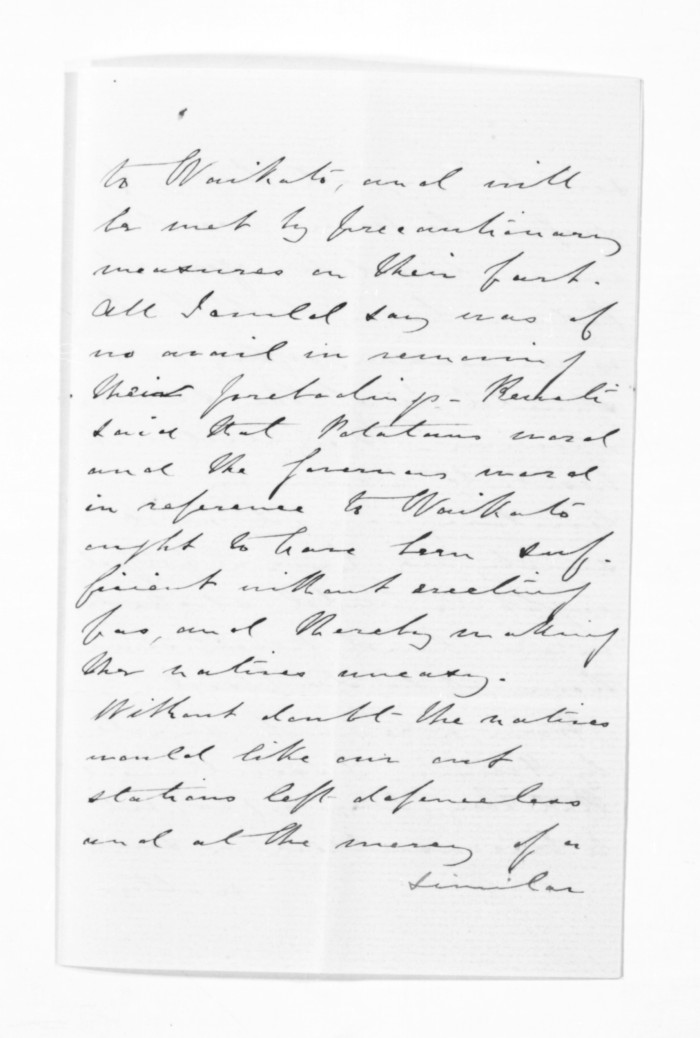 to Waikato, and will
be met by precautionary
measures on their part.
All I could say was of
no avail in removing
their forebodings - 
said that Potataus word
and the Governors word
in reference to Waikato
ought to have been suf-
ficient without erecting
pas, and thereby making
the natives uneasy.
Without doubt the natives
would like our out
stations left defenceless
and at the mercy of a
similar